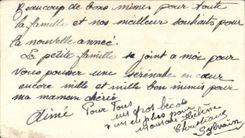 Beaucoup de bons mimis pour toute
la famille et nos meilleur souhaits pour
la nouvelle année.
La petite famille se joint a moé pour
vous pousser une Sérénade en cœur
encore mille et mille bon mimis pour
ma maman chérie
Aimé Pour Tous
un gros becot
un plus pour
Hélène
Christiane
Sylvain